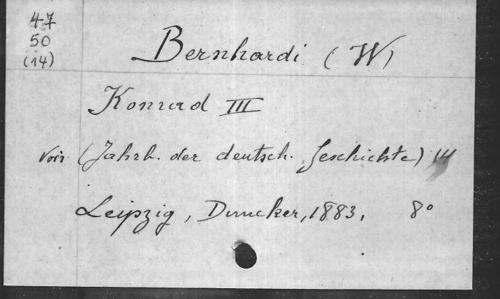 47
50
(14)
Bernhardi (W)
Konrad III
Voir (Jahrb. der deutsch. Geschichte) 14
Leipzig, Duncker, 1883, 8°